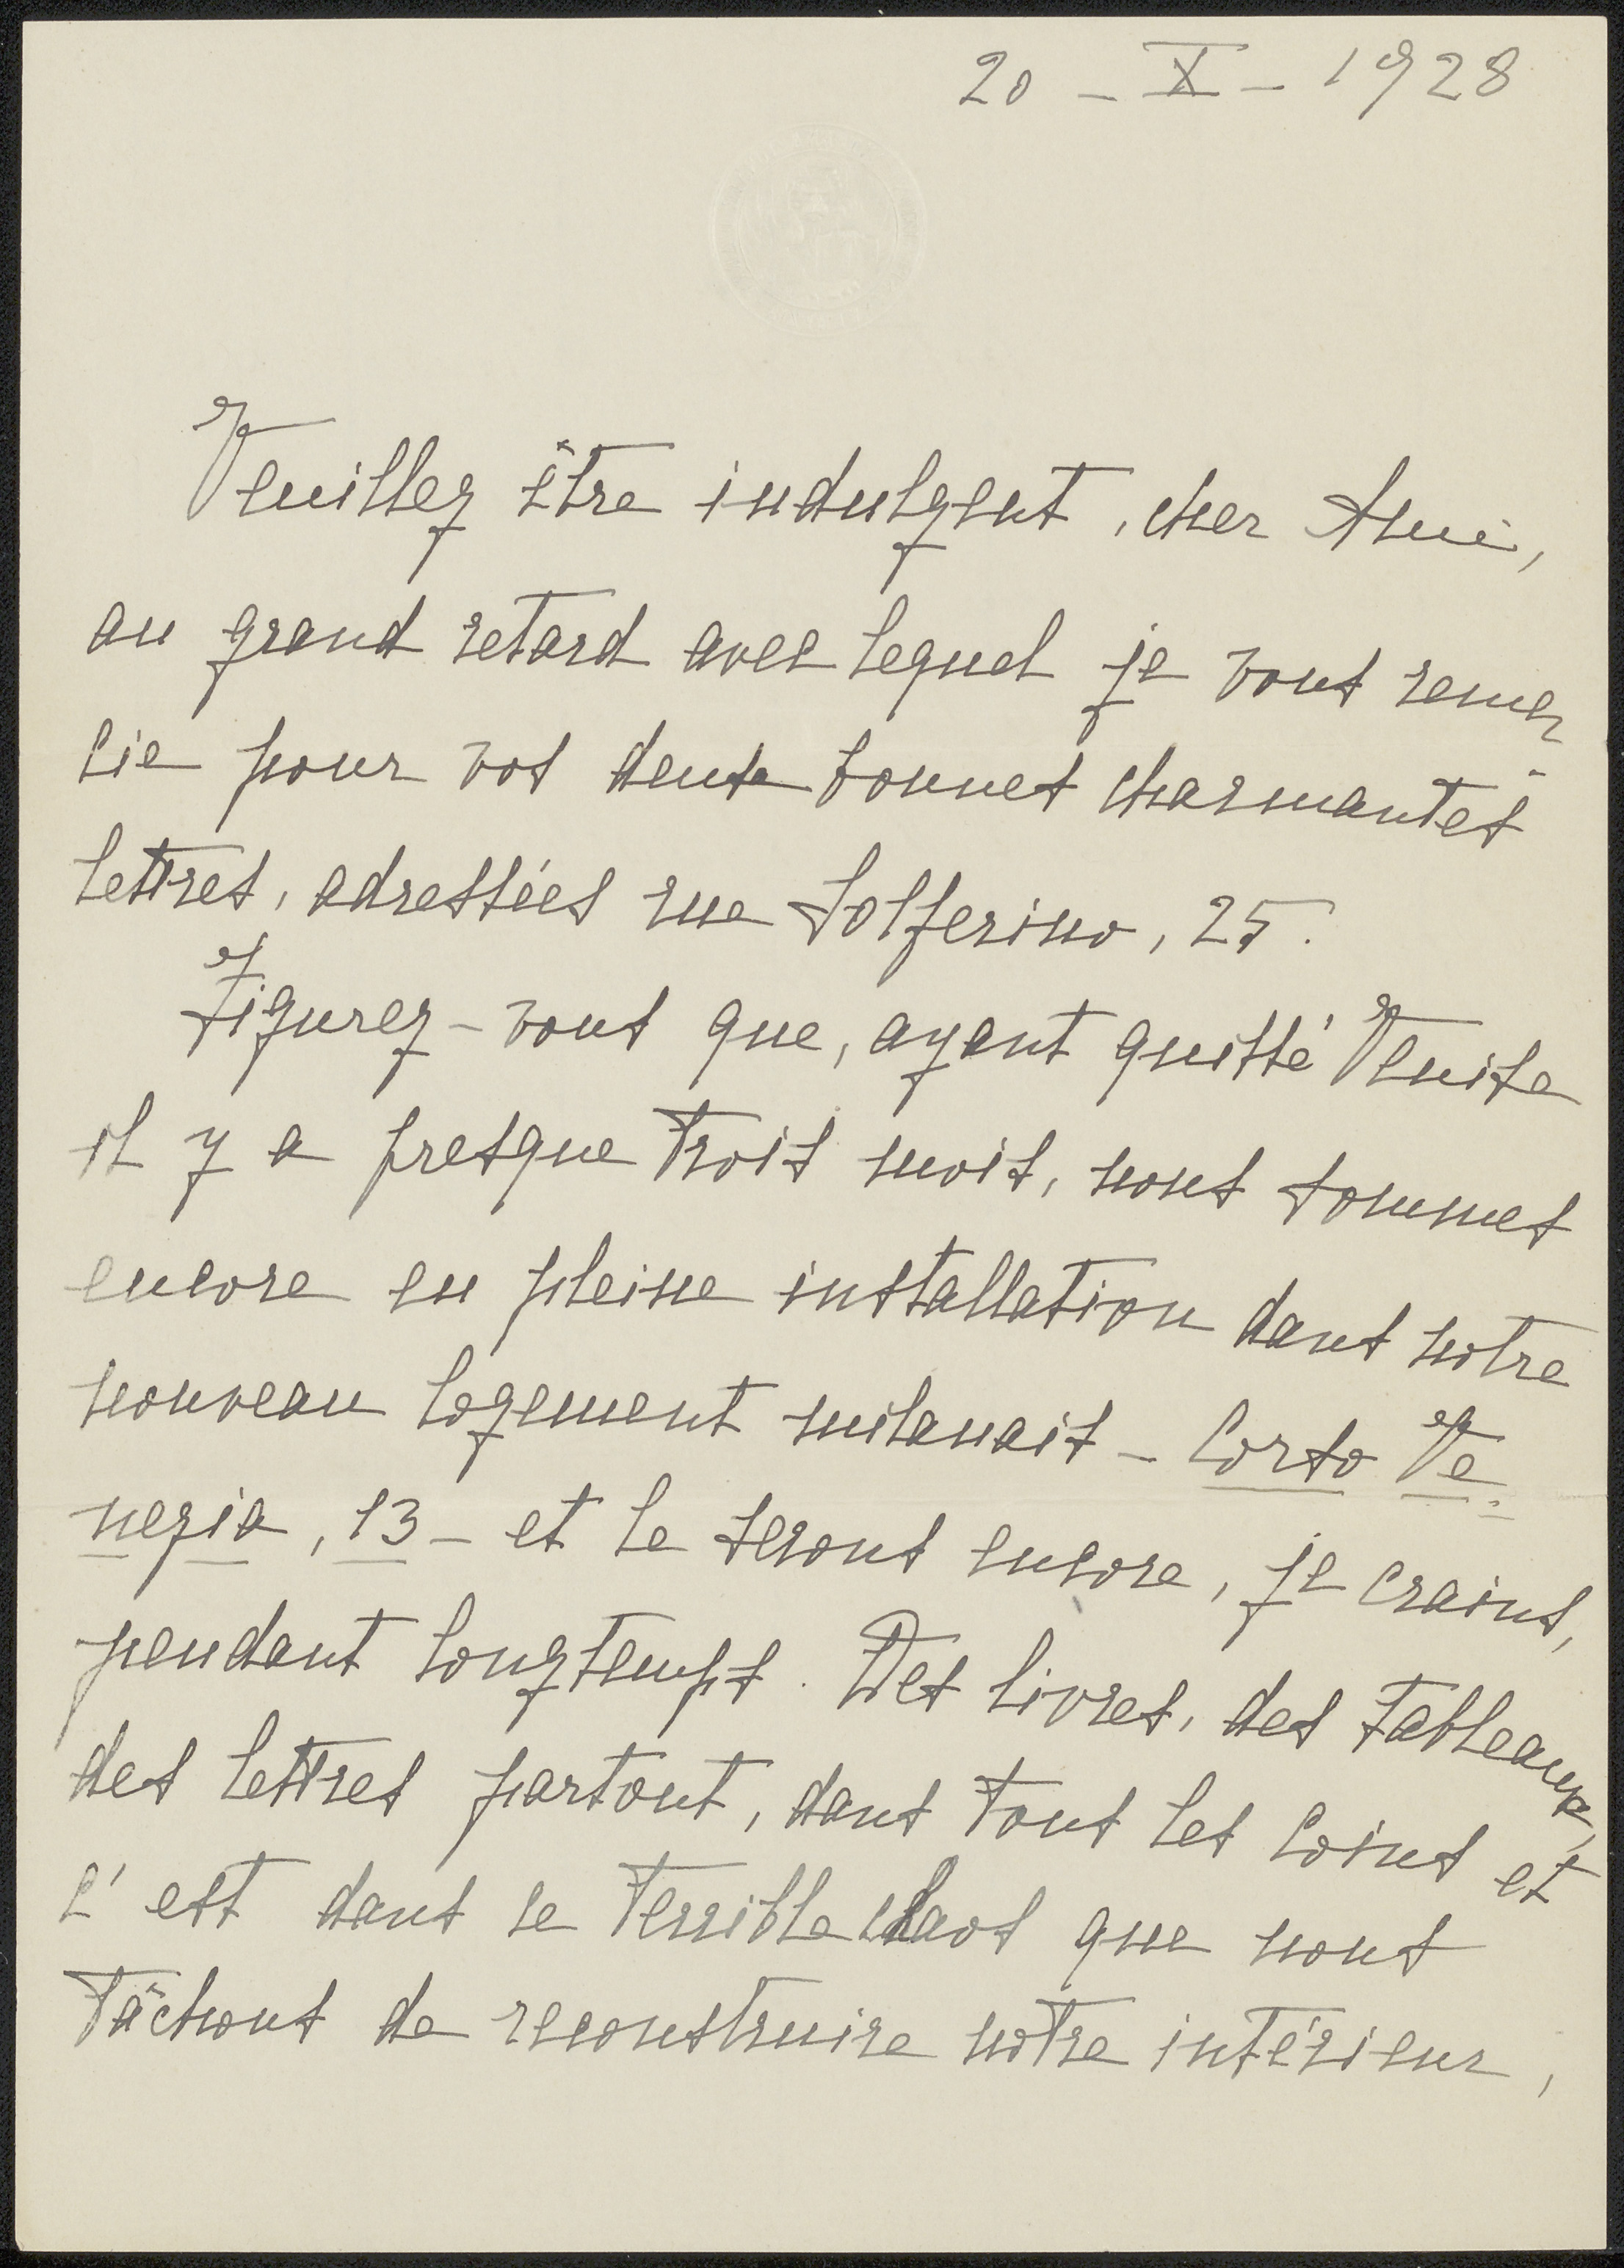 20 - X - 1928
Veuillez être indulgent, cher Ami,
au grand retard avec lequel je vous remer
cie pour vos deux bonnes charmantes
lettres, adressées rue Solferino, 25.
Figurez-vous que, ayant quitté Venise
il y a presque trois mois, nous sommes
encore en pleine installation dans notre
nouveau logement milanais - Corso Ve
nezia, 13 - et le serons encore, je crains,
pendant longtemps. Des livres, des tableaux,
des lettres partout, dans tous les coins et
c'est dans ce terrible chaos que nous
tâchons de reconstruire notre intérieur,